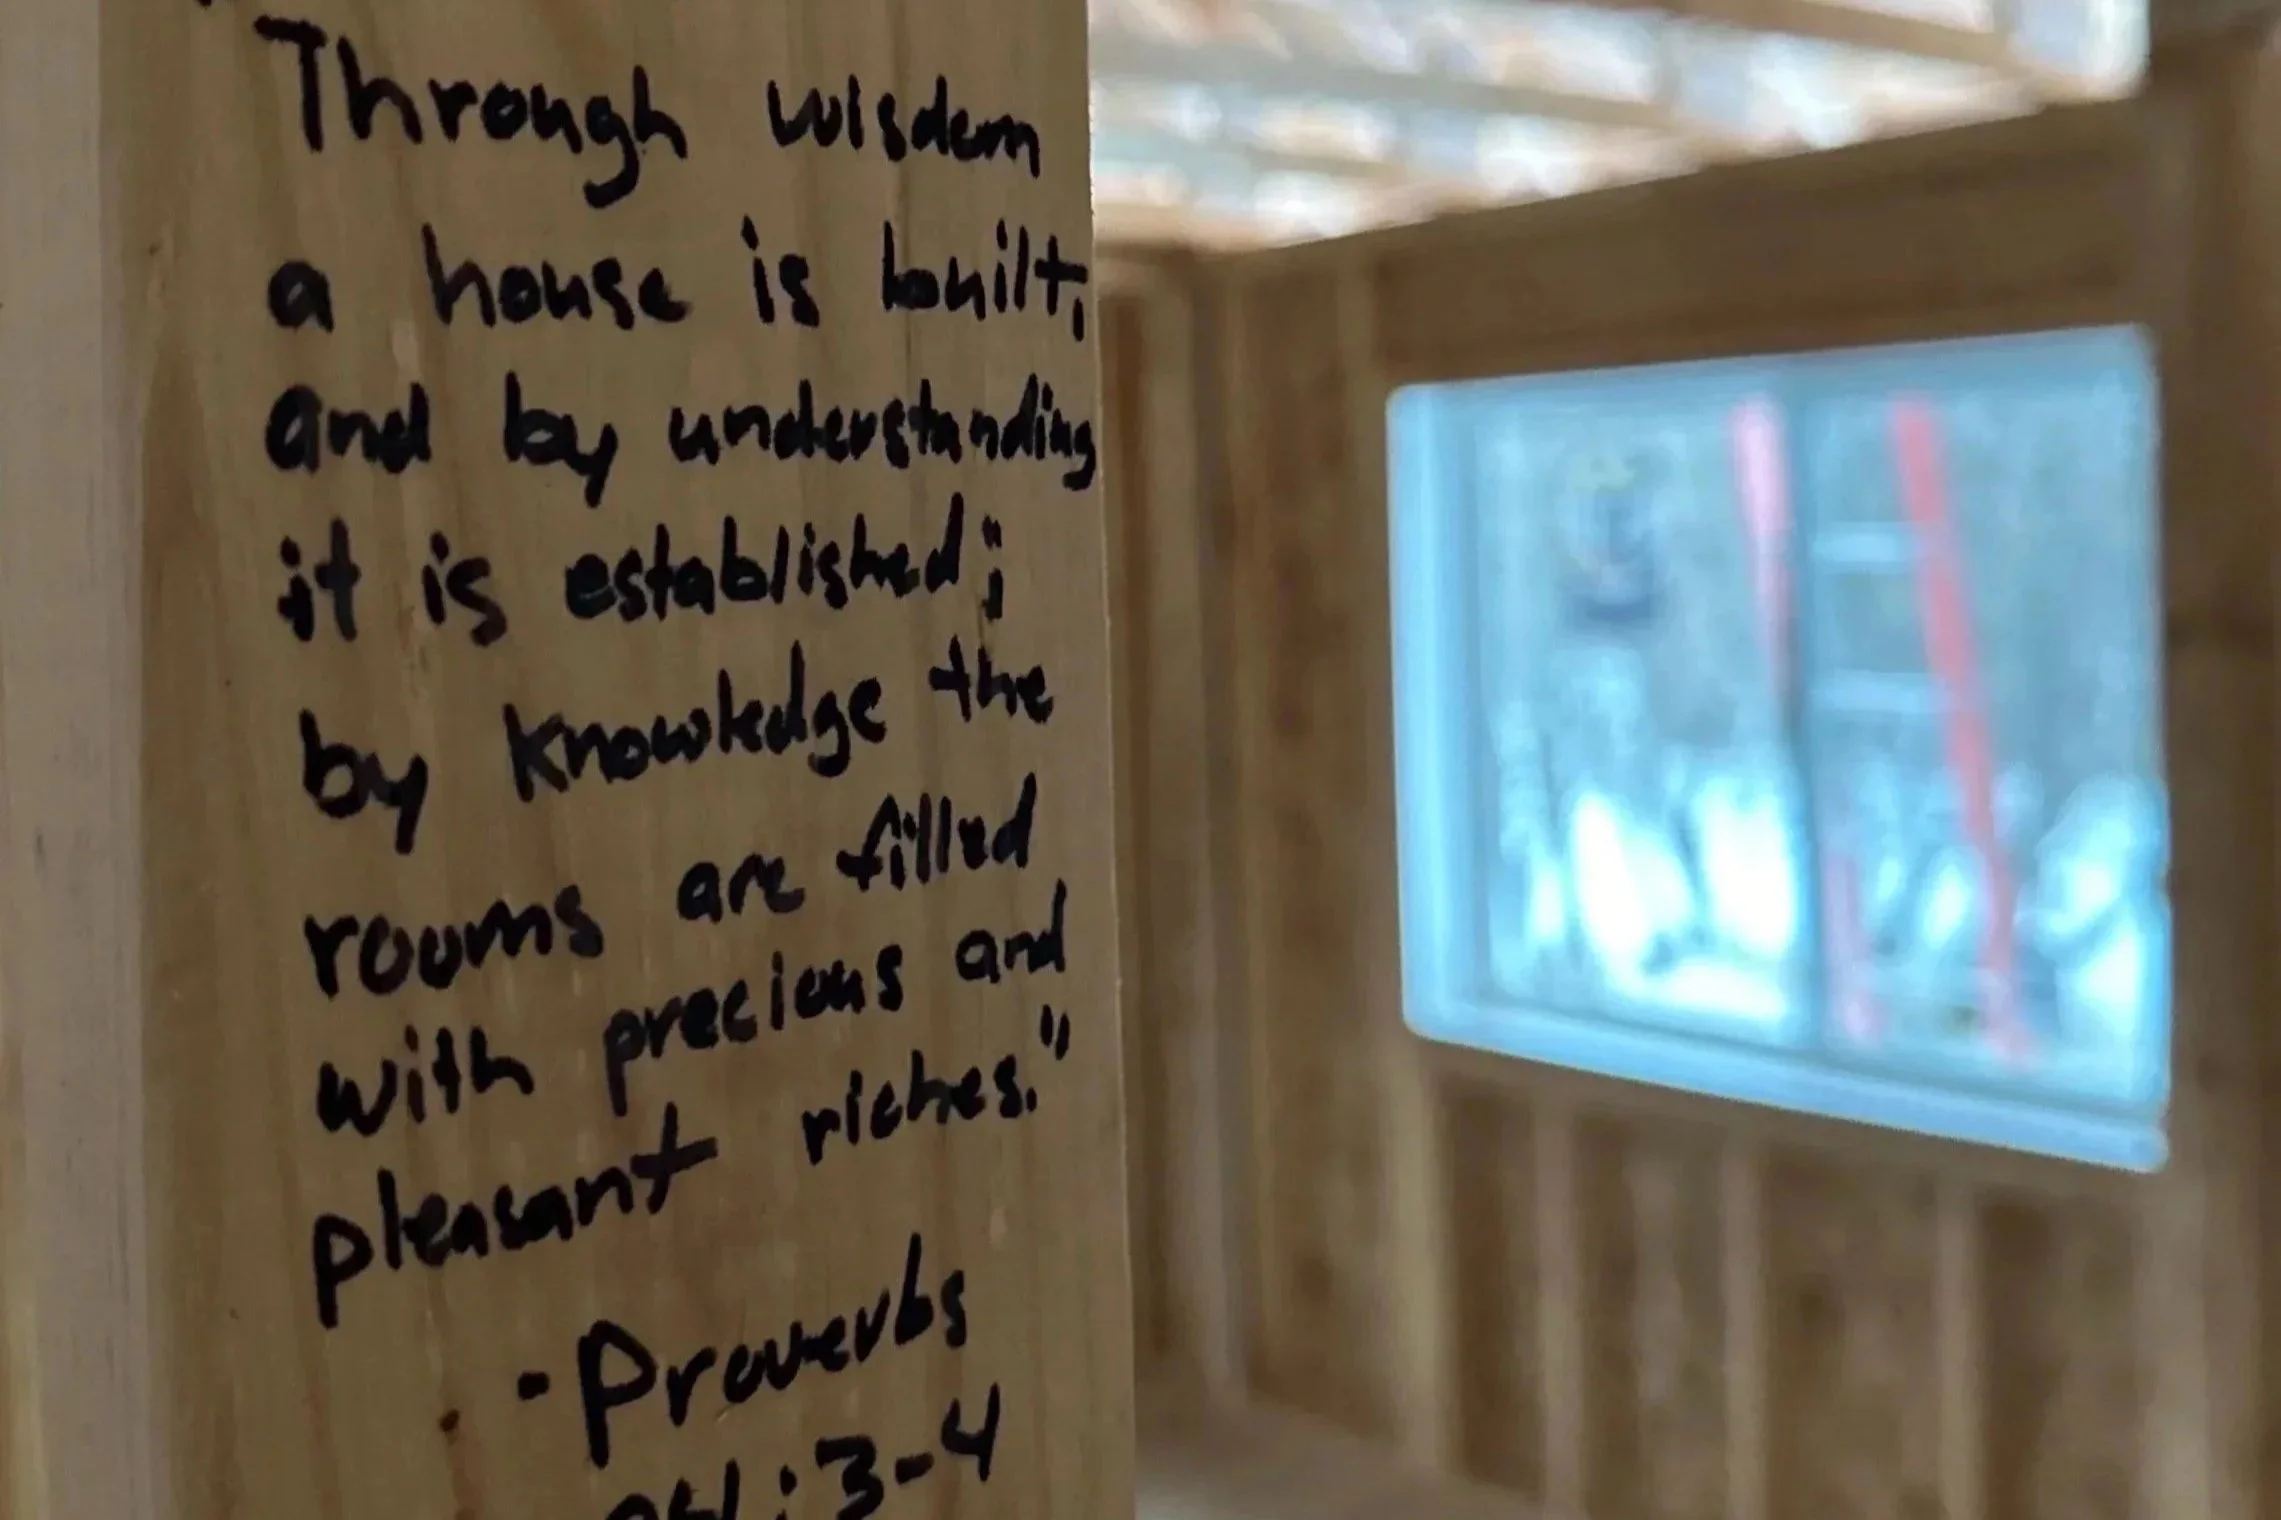 "Through wisdom
a house is built,
and by understanding
it is established;
by knowledge the
rooms are filled
with precious and
pleasant riches."
- Proverbs
24:3-4